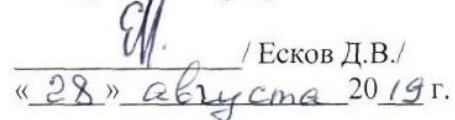 / Есков Д.В./
« 28 » августа 20 19 г.